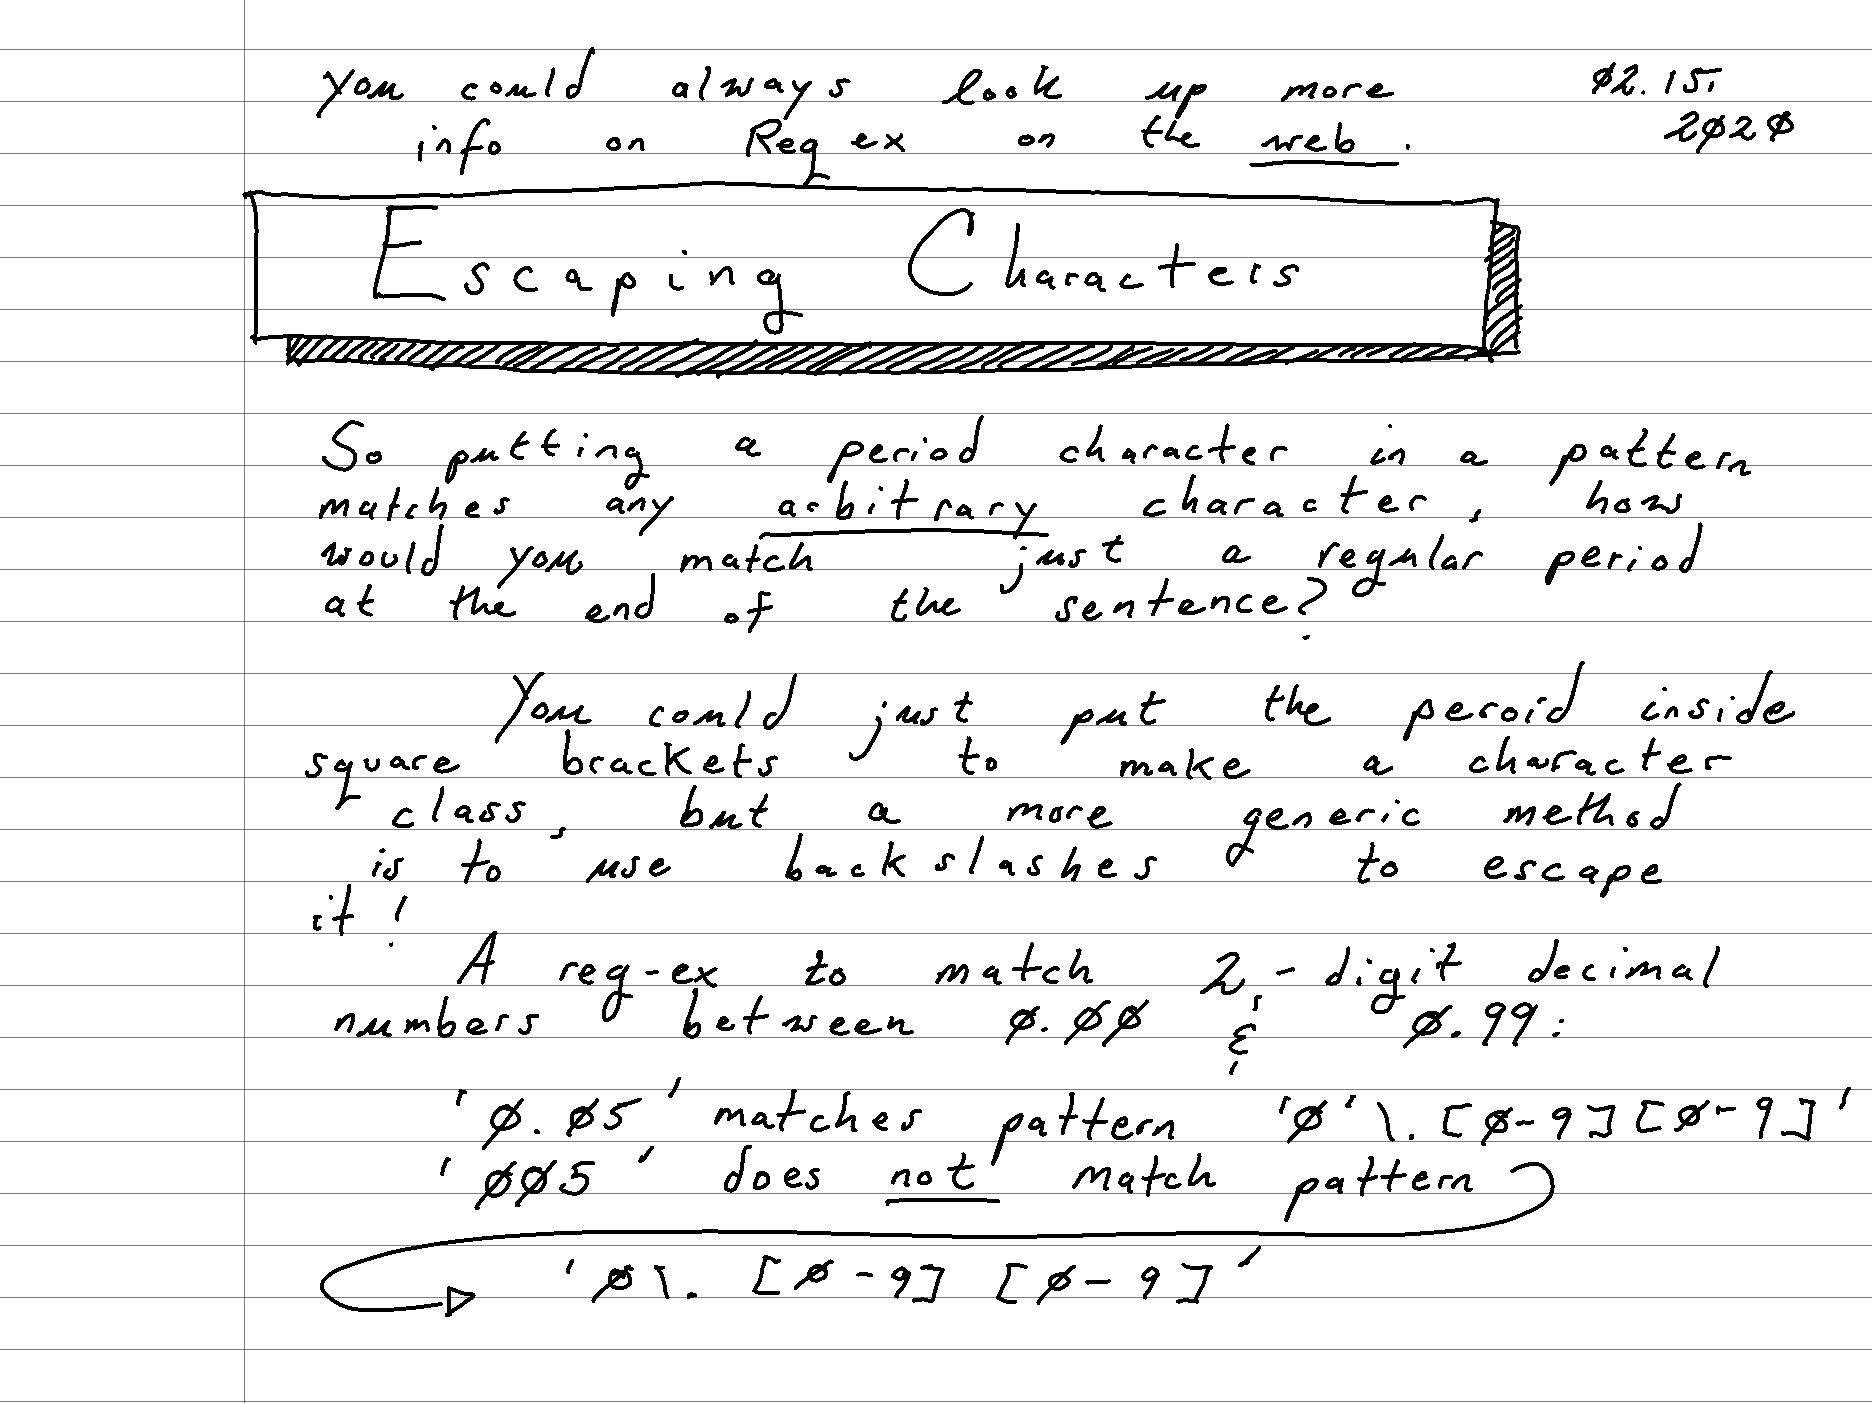 you could always look up more
info on Reg ex on the web.
02.15.
2020
Escaping Characters
So putting a period character in a pattern
matches any arbitrary character, how
would you match just a regular period
at the end of the sentence?
You could just put the peroid inside
square brackets to make a character
class, but a more generic method
is to use backslashes to escape
it!
A reg-ex to match 2-digit decimal
numbers between 0.00 & 0.99:
'0.05' matches pattern '0'\.[0-9][0-9]'
'005' does not match pattern
'0\.[0-9][0-9]'